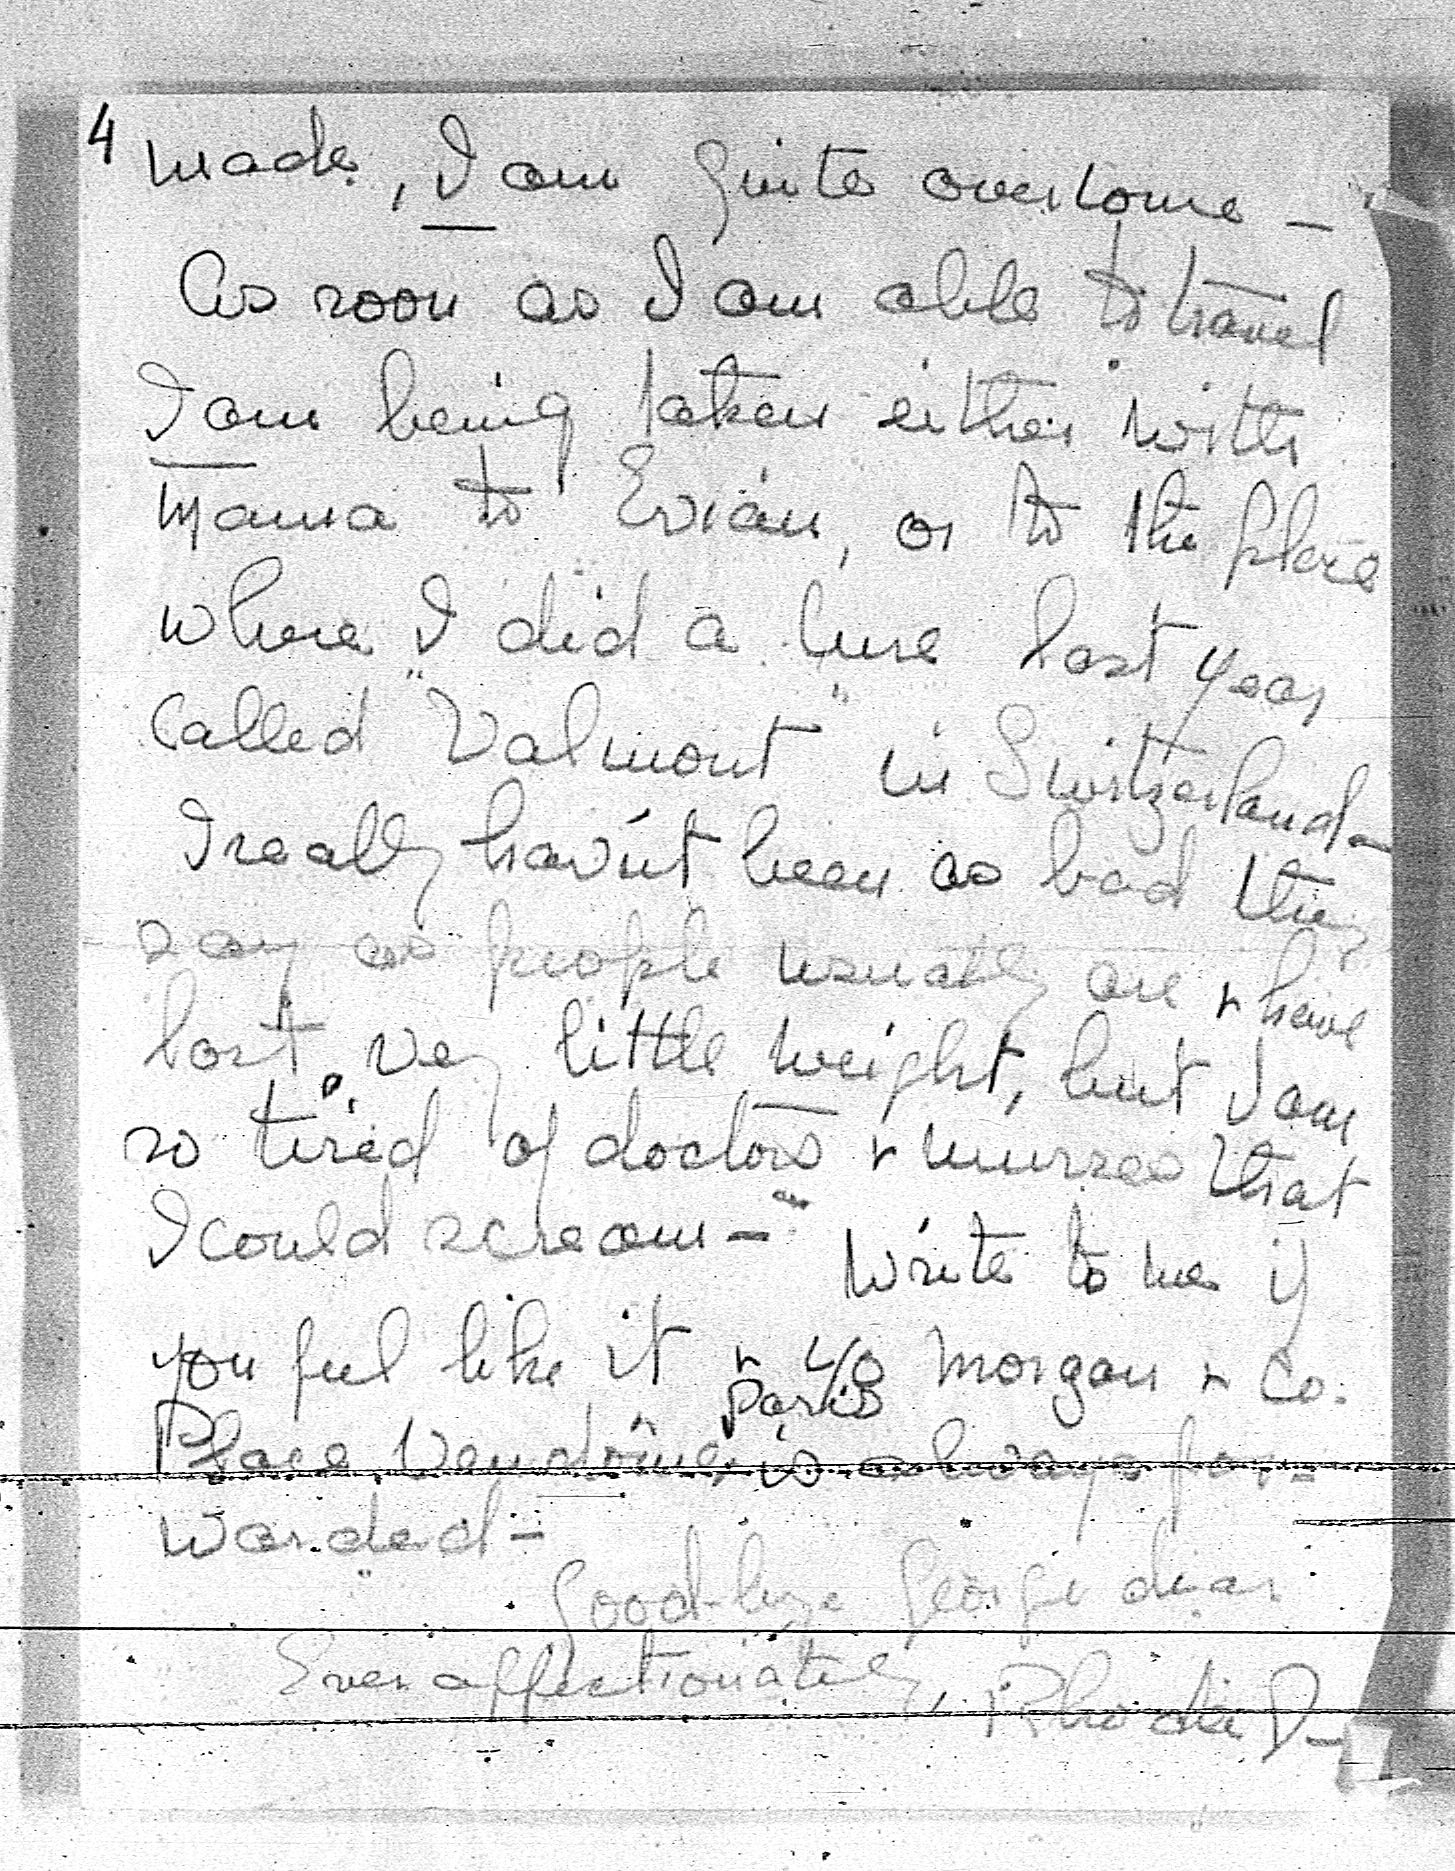 4 made, I am quite overcome –
As soon as I am able to travel
I am being taken either with
Mama to Evian, or to the place
where I did a cure last year
called "Valmont" in Switzerland –
I really hav'nt been as bad they
say as people usually are & have
lost very little weight, but I am
so tired of doctors & nurses that
I could scream – Write to me if
you feel like it & c/o Morgan & Co.
Paris
Place Vendôme, is always for-
warded –
Good-bye George dear
Ever affectionately,
Rhoda D –